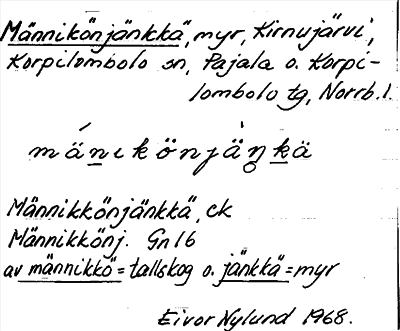 Männikönjänkkä, myr, Kirnujärvi,
Korpilombolo sn, Pajala o. Korpi-
lombolo tg, Norrb.l.
mä́nikönjä̀ŋ̥kä
Männikkönjänkkä, ek
Männikkönj. Gn 16
av männikkö = tallskog o. jänkkä = myr
Eivor Nylund 1968.